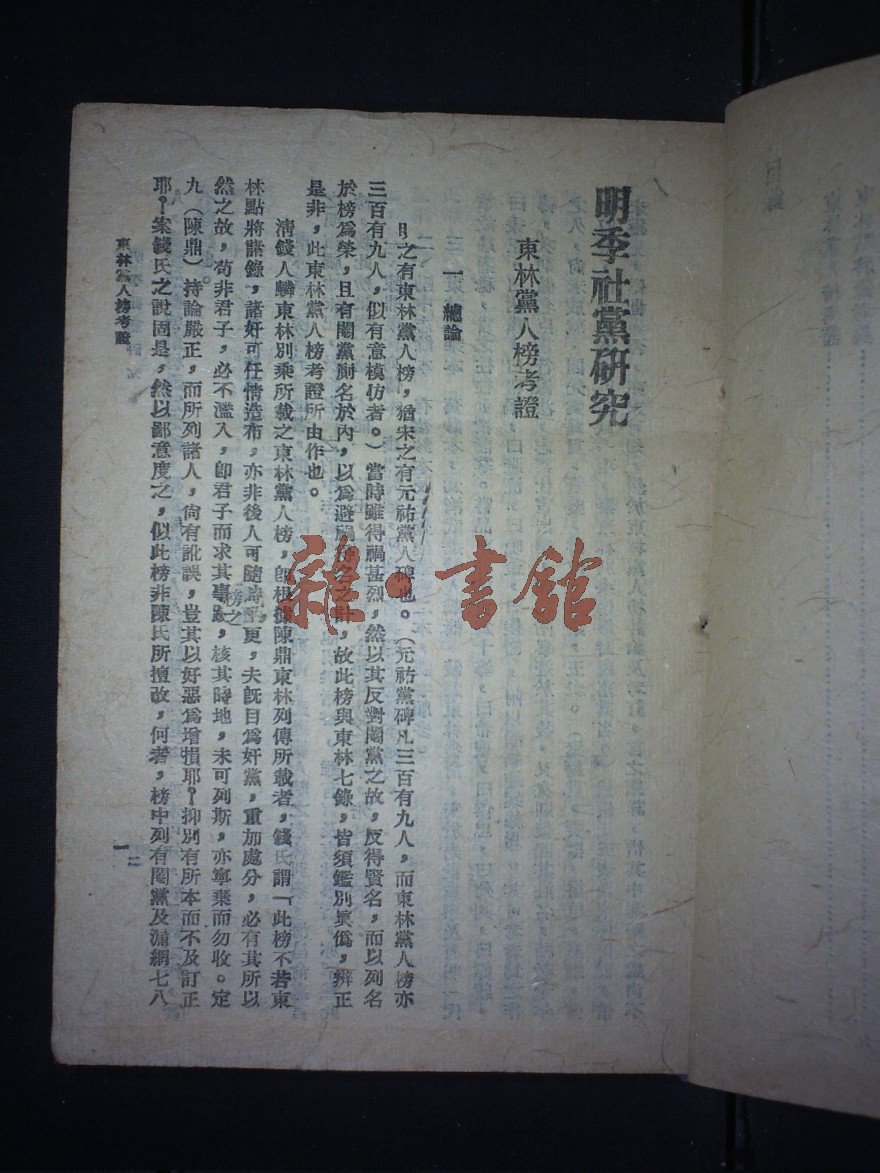 明季社黨研究
東林黨人榜考證
一　總論
之有東林黨人榜，猶宋之有元祐黨人碑也。（元祐黨碑凡三百有九人，而東林黨人榜亦
三百有九人，似有意模仿者。）當時雖得禍甚烈，然以其反對閹黨之故，反得賢名，而以列名
於榜爲榮，且有閹黨厠名於內，以爲避禍之計，故此榜與東林七錄，皆須鑑別眞僞，辨正
是非，此東林黨人榜考證所由作也。
淸錢人麟東林別乘所載之東林黨人榜，卽根據陳鼎東林列傳所載者，錢氏謂「此榜不若東
林點將諸錄，諸奸可任情造布，亦非後人可隨時更，夫旣目爲奸黨，重加處分，必有其所以
然之故，苟非君子，必不濫入，卽君子而求其事，核其時地，未可列斯，亦寧棄而勿收。定
九（陳鼎）持論嚴正，而所列諸人，尙有訛誤，豈其以好惡爲增損耶？抑別有所本而不及訂正
耶？案錢氏之說固是，然以鄙意度之，似此榜非陳氏所擅改，何者，榜中列有閹黨及漏網七八
榜之
東林黨人榜考證
一
雜·書館